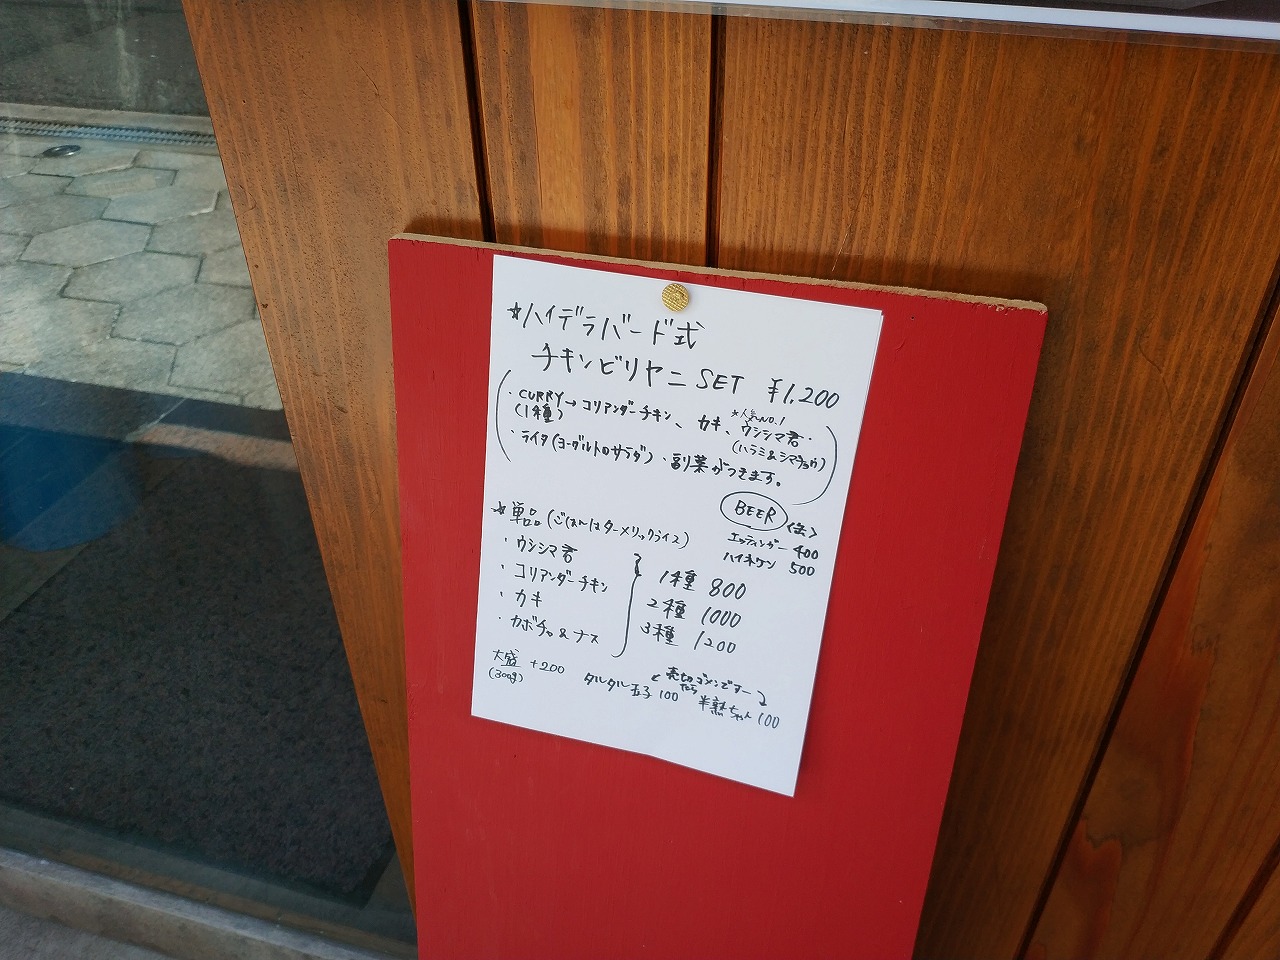 ☆ハイデラバード式
チキンビリヤニ SET ¥1,200
・CURRY→コリアンダーチキン、カキ、ウシシマ君・
(1種)
☆人気NO.1
(ハラミ&シマチョウ)
・ライタ(ヨーグルトのサラダ)・副菜がつきます。
☆単品(ごはんはターメリックライス)
・ウシシマ君
・コリアンダーチキン
・カキ
・カボチャ&ナス
1種 800
2種 1000
3種 1200
BEER (缶)
エッティンガー 400
ハイネケン 500
大盛 +200
(300g)
タルタル玉子 100
半熟ちゃん 100
売切
たら
ゴメンでスー